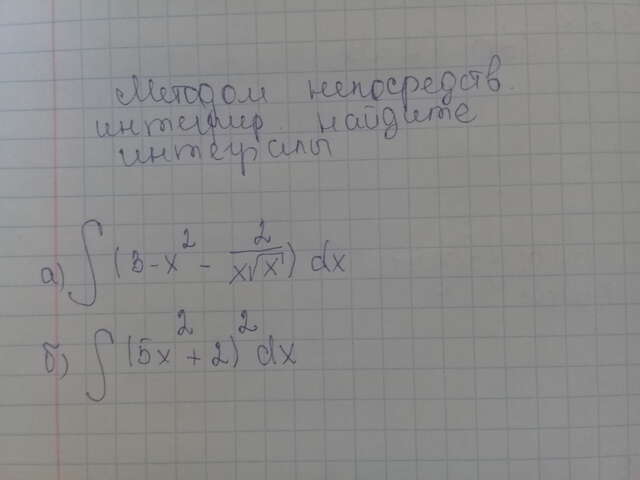 Методом непосредств.
интегрир. найдите
интегралы
а) ∫ (3 - x² - 2/(x√x)) dx
б) ∫ (5x² + 2)² dx